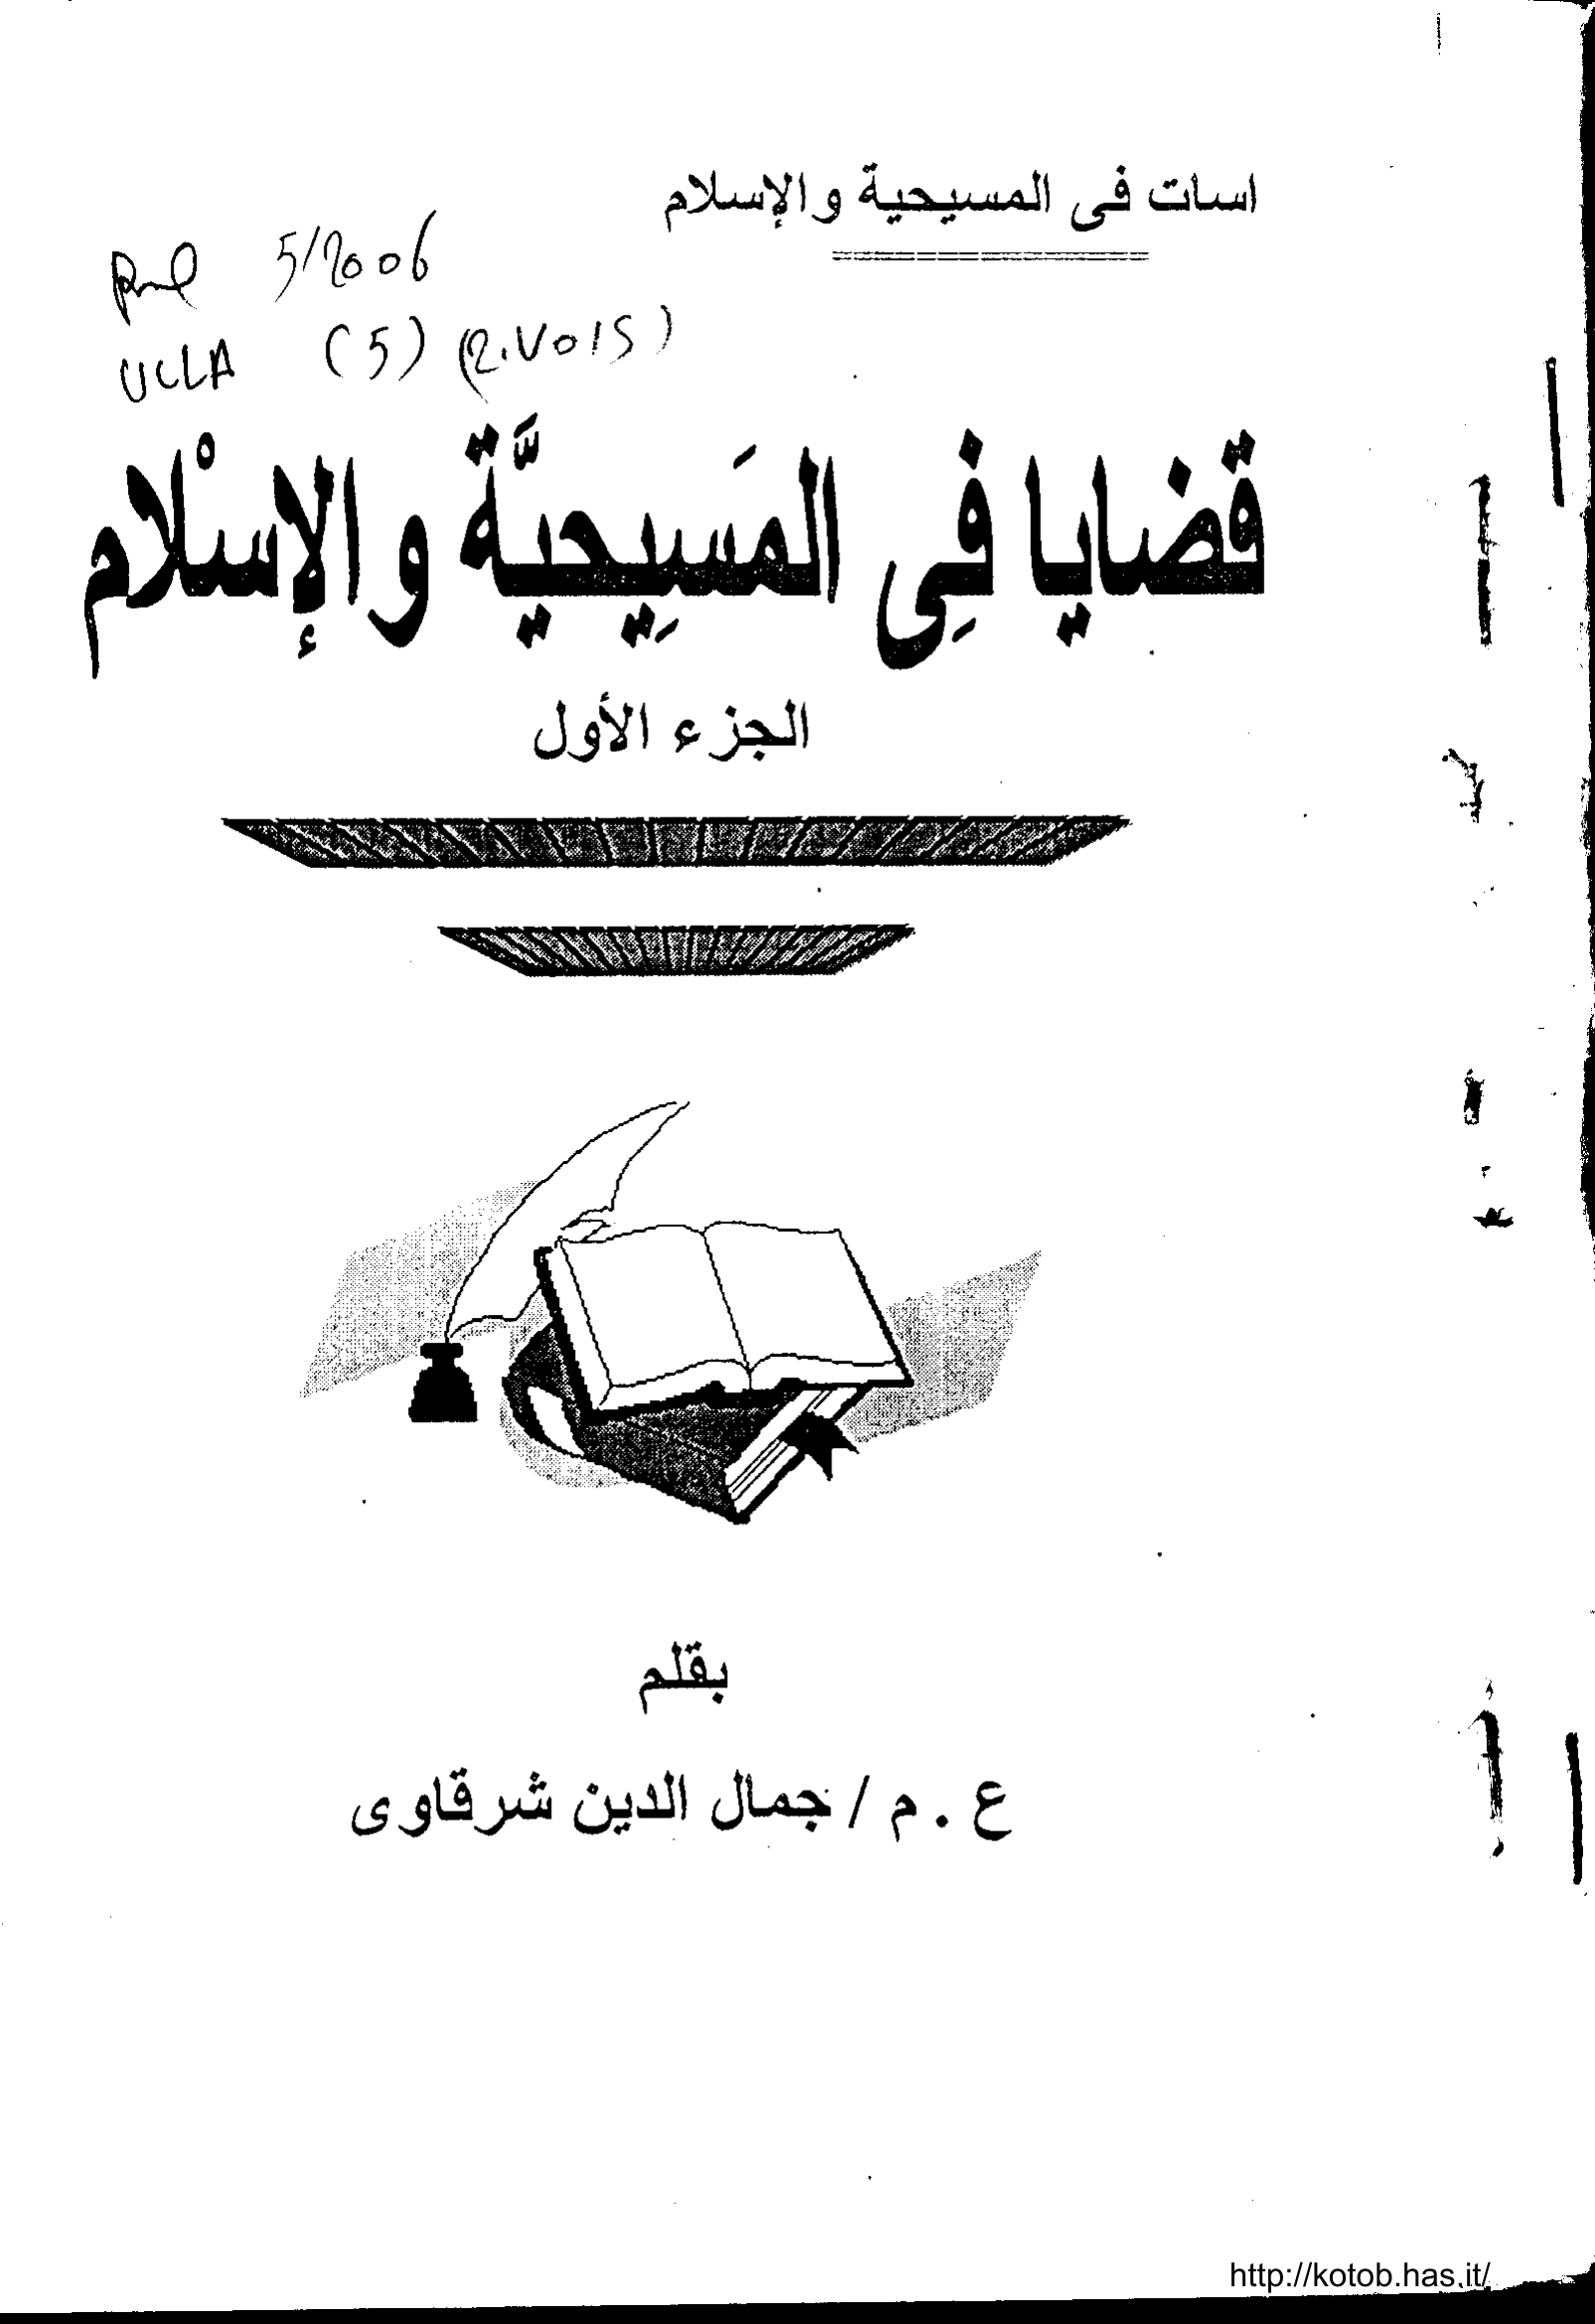 اسات فى المسيحية والإسلام
5/2006
UCLA (5) (2.Vols)
قضايا فِى المَسِيحيَّة والإسْلام
الجزء الأول
بقلم
ع . م / جمال الدين شرقاوى
http://kotob.has.it/